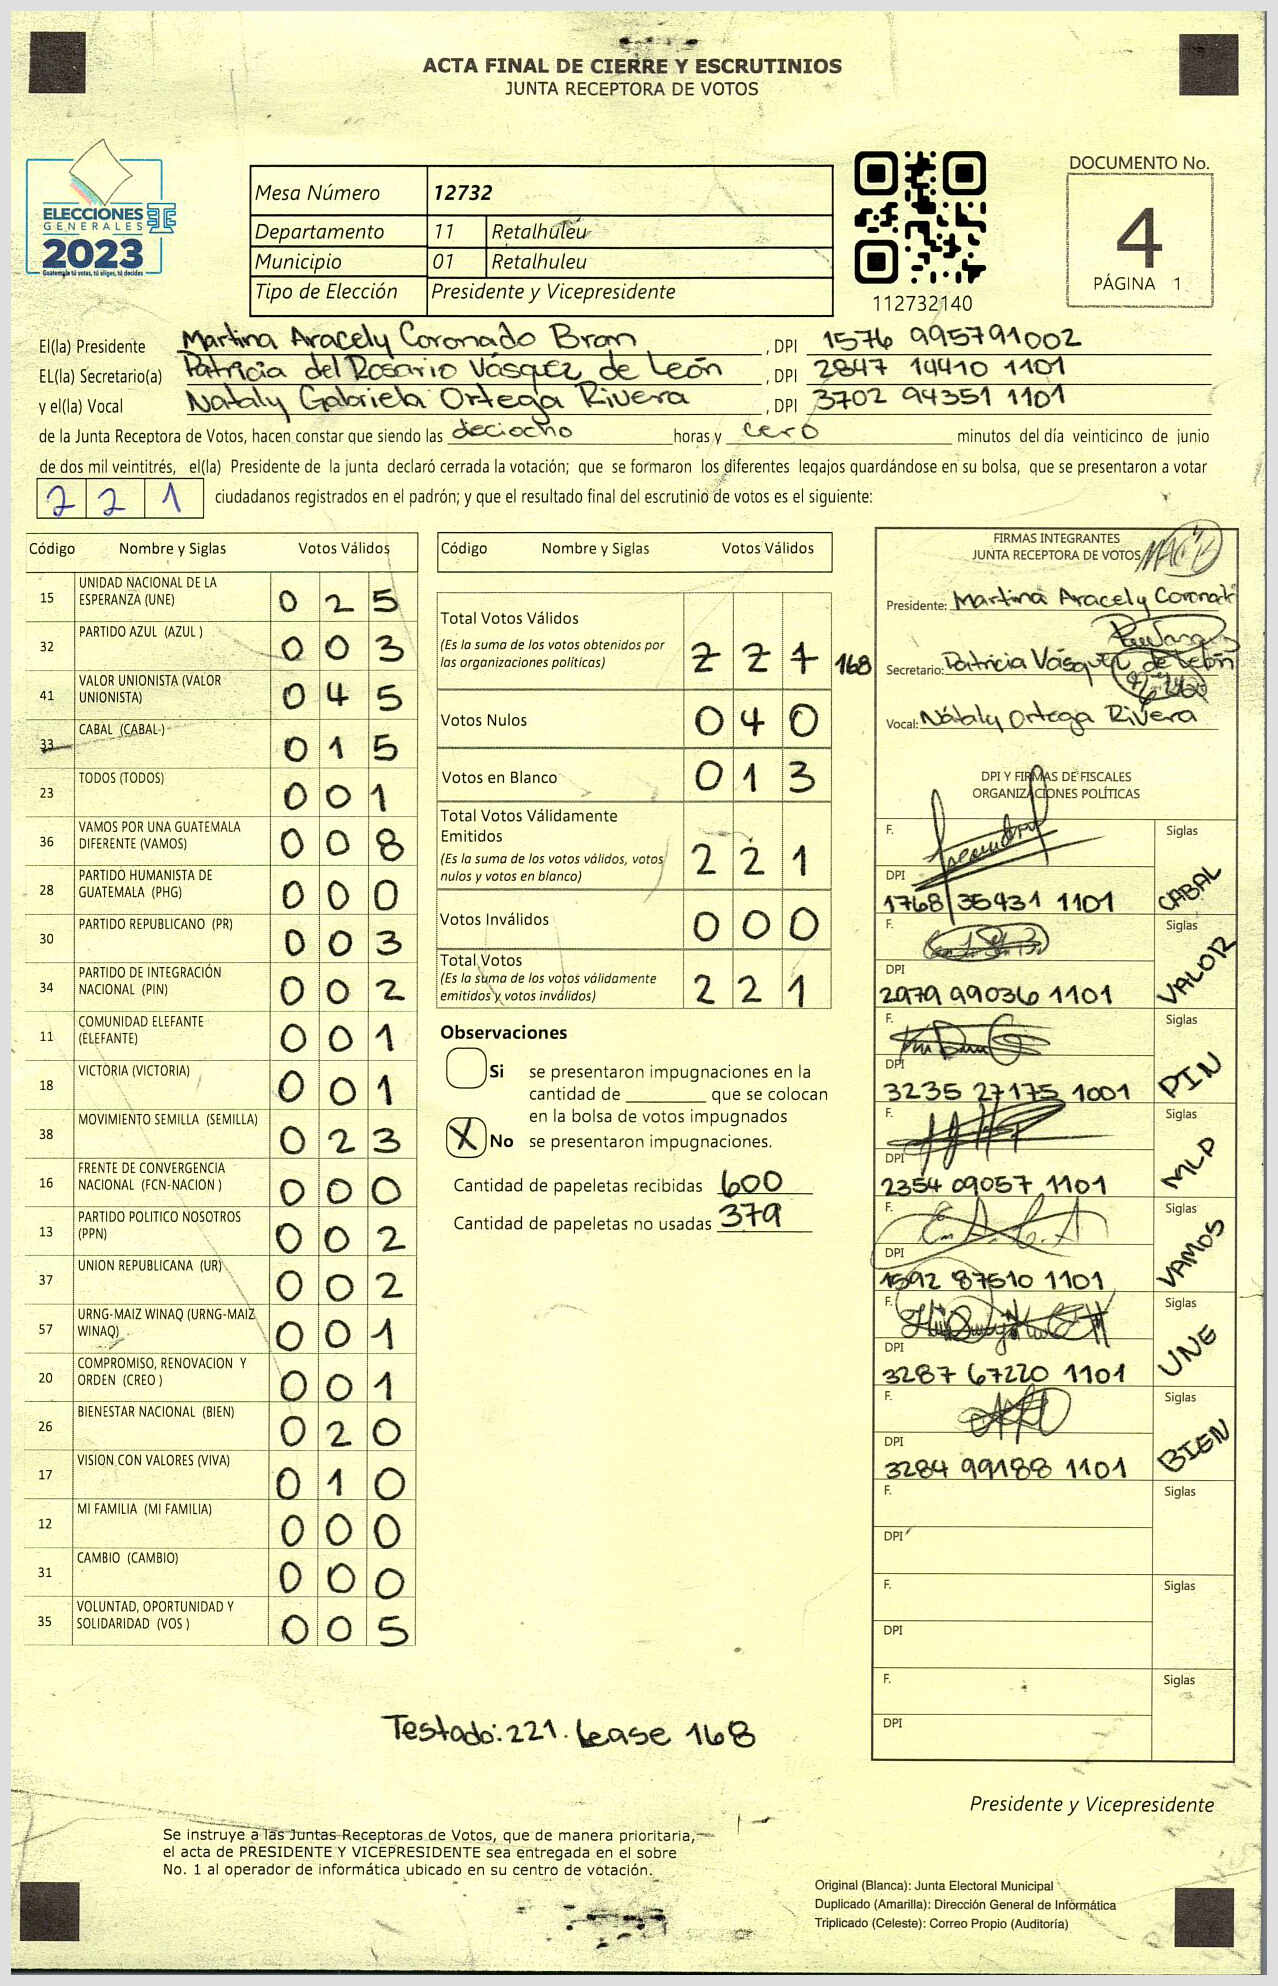 ACTA FINAL DE CIERRE Y ESCRUTINIOS
JUNTA RECEPTORA DE VOTOS
ELECCIONES
GENERALES
2023
Guatemala tú votas, tú eliges, tú decides
Mesa Número 12732
Departamento 11 Retalhuleu
Municipio 01 Retalhuleu
Tipo de Elección Presidente y Vicepresidente
112732140
DOCUMENTO No.
4
PÁGINA 1
El(la) Presidente Martina Aracely Coronado Bran, DPI 1576 995791002
EL(la) Secretario(a) Patricia del Rosario Vásquez de León, DPI 2847 14410 1101
y el(la) Vocal Nataly Gabriela Ortega Rivera, DPI 3702 94351 1101
de la Junta Receptora de Votos, hacen constar que siendo las deciocho horas y cero minutos del día veinticinco de junio
de dos mil veintitrés, el(la) Presidente de la junta declaró cerrada la votación; que se formaron los diferentes legajos guardándose en su bolsa, que se presentaron a votar
221 ciudadanos registrados en el padrón; y que el resultado final del escrutinio de votos es el siguiente:
Código Nombre y Siglas Votos Válidos
15 UNIDAD NACIONAL DE LA ESPERANZA (UNE) 025
32 PARTIDO AZUL (AZUL ) 003
41 VALOR UNIONISTA (VALOR UNIONISTA) 045
33 CABAL (CABAL-) 015
23 TODOS (TODOS) 001
36 VAMOS POR UNA GUATEMALA DIFERENTE (VAMOS) 008
28 PARTIDO HUMANISTA DE GUATEMALA (PHG) 000
30 PARTIDO REPUBLICANO (PR) 003
34 PARTIDO DE INTEGRACIÓN NACIONAL (PIN) 002
11 COMUNIDAD ELEFANTE (ELEFANTE) 001
18 VICTORIA (VICTORIA) 001
38 MOVIMIENTO SEMILLA (SEMILLA) 023
16 FRENTE DE CONVERGENCIA NACIONAL (FCN-NACION ) 000
13 PARTIDO POLITICO NOSOTROS (PPN) 002
37 UNION REPUBLICANA (UR) 002
57 URNG-MAIZ WINAQ (URNG-MAIZ WINAQ) 001
20 COMPROMISO, RENOVACION Y ORDEN (CREO ) 001
26 BIENESTAR NACIONAL (BIEN) 020
17 VISION CON VALORES (VIVA) 010
12 MI FAMILIA (MI FAMILIA) 000
31 CAMBIO (CAMBIO) 000
35 VOLUNTAD, OPORTUNIDAD Y SOLIDARIDAD (VOS ) 005
Código Nombre y Siglas Votos Válidos
Total Votos Válidos
(Es la suma de los votos obtenidos por las organizaciones políticas) 221 168
Votos Nulos 040
Votos en Blanco 013
Total Votos Válidamente Emitidos
(Es la suma de los votos válidos, votos nulos y votos en blanco) 221
Votos Inválidos 000
Total Votos
(Es la suma de los votos válidamente emitidos y votos inválidos) 221
Observaciones
Si se presentaron impugnaciones en la
cantidad de ________ que se colocan
en la bolsa de votos impugnados
X No se presentaron impugnaciones.
Cantidad de papeletas recibidas 600
Cantidad de papeletas no usadas 379
FIRMAS INTEGRANTES
JUNTA RECEPTORA DE VOTOS
Presidente: Martina Aracely Coronado
Secretario: Patricia Vásquez de León
Vocal: Nátaly Ortega Rivera
DPI Y FIRMAS DE FISCALES
ORGANIZACIONES POLÍTICAS
F. Siglas
DPI 1768 35431 1101 CABAL
F. Siglas
DPI 2979 99036 1101 VALOR
F. Siglas
DPI 3235 27175 1001 PIN
F. Siglas
DPI 2354 09057 1101 MLP
F. Siglas
DPI 1592 87510 1101 VAMOS
F. Siglas
DPI 3287 67220 1101 UNE
F. Siglas
DPI 3284 99188 1101 BIEN
F. Siglas
DPI
F. Siglas
DPI
F. Siglas
DPI
Testado: 221. Lease 168
Presidente y Vicepresidente
Se instruye a las Juntas Receptoras de Votos, que de manera prioritaria,
el acta de PRESIDENTE Y VICEPRESIDENTE sea entregada en el sobre
No. 1 al operador de informática ubicado en su centro de votación.
Original (Blanca): Junta Electoral Municipal
Duplicado (Amarilla): Dirección General de Informática
Triplicado (Celeste): Correo Propio (Auditoría)